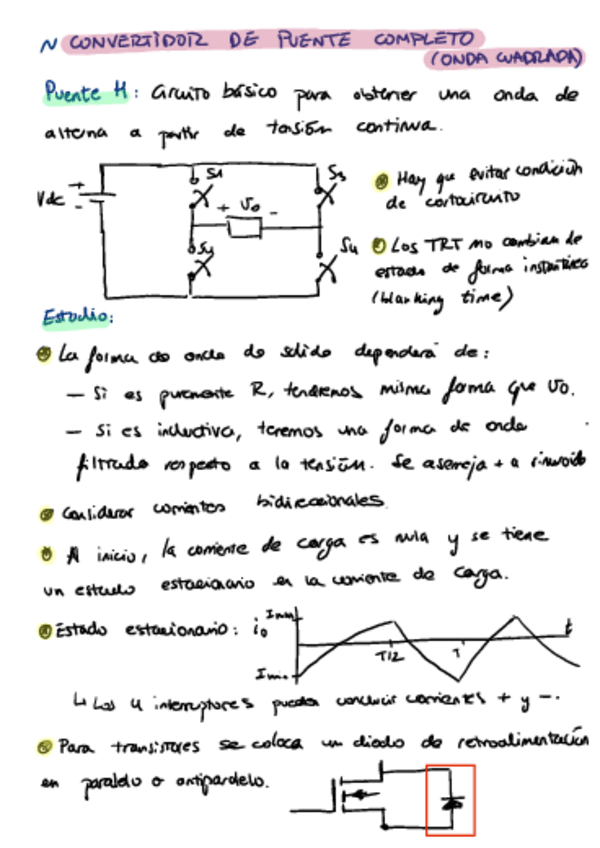 ~ CONVERTIDOR DE PUENTE COMPLETO
(ONDA CUADRADA)
Puente H: Circuito básico para obtener una onda de
alterna a partir de tensión continua.
S1
S3
Vdc
+
-
+ Vo -
S4
S4
Hay que evitar condición
de cortocircuito
Los TRT no cambian de
estado de forma instantánea
(blanking time)
Estudio:
La forma de onda de salida dependerá de:
- Si es puramente R, tendremos misma forma que Vo.
- Si es inductiva, tenemos una forma de onda
filtrada respecto a la tensión. Se asemeja + a sinusoide
Considerar corrientes bidireccionales.
Al inicio, la corriente de carga es nula y se tiene
un estado estacionario en la corriente de carga.
Estado estacionario: io
Imáx
Imin
T/2
T
t
↳ Los 4 interruptores pueden conducir corrientes + y -.
Para transistores se coloca un diodo de retroalimentación
en paralelo o antiparalelo.